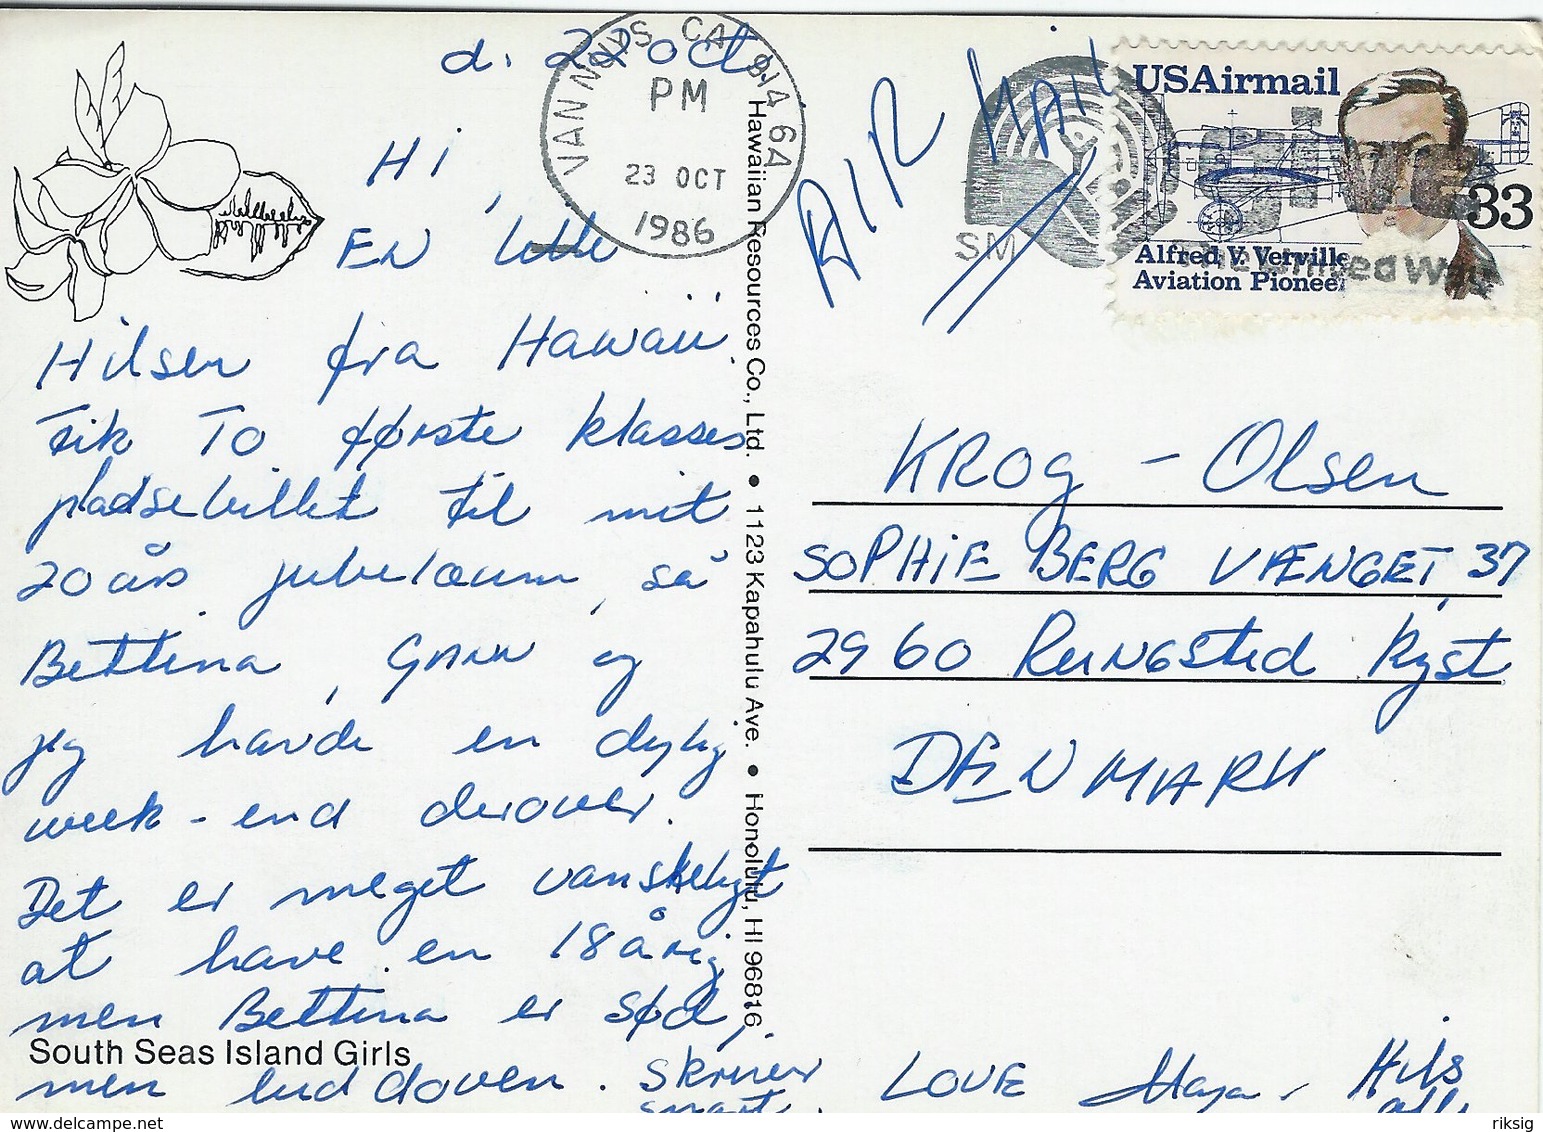 d. 22 oct.
VAN NUYS CA 914 6A
PM
23 OCT
1986
AIR MAIL
SM
USAirmail
33
Alfred V. Verville
Aviation Pioneer
The United Way
Hi,
EN lille
Hilsen fra Hawaii.
Fik TO første klasses
pladsebillet til mit
20 års jubelæum, så
Bettina, GARN og
jeg havde en dejlig
week-end derover.
Det er meget vanskeligt
at have en 18 årig
men Bettina er sød,
men luddoven. skriver
snart.
South Seas Island Girls
Hawaiian Resources Co., Ltd. • 1123 Kapahulu Ave. • Honolulu, HI 96816
KROG - Olsen
SOPHIE BERG VÆNGET, 37
2960 RUNGSTED Kyst
DENMARK
LOVE Maja. Hils
alle
delcampe.net
riksig